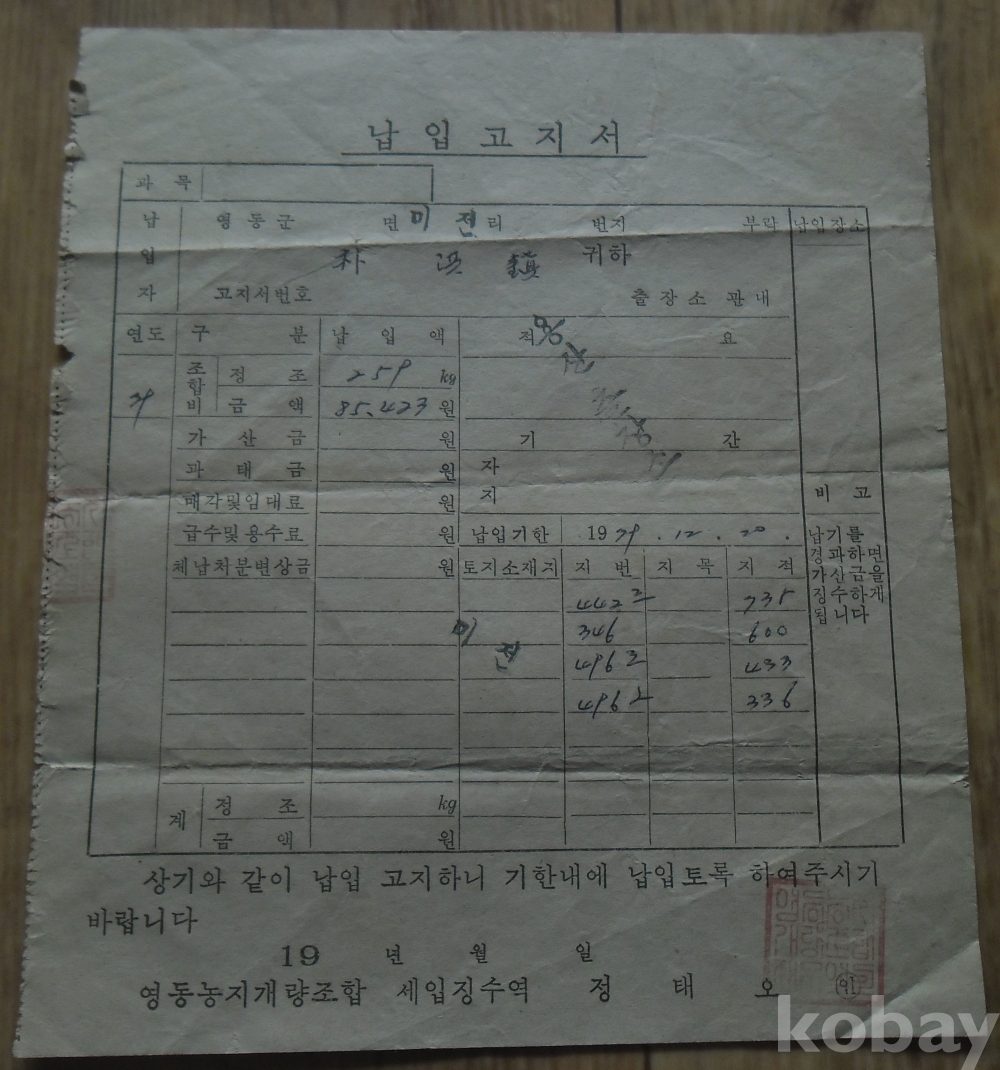 납입고지서
과목
납입자 영동군 면 미전리 번지 부락 납입장소
朴 洪 鎭 귀하
고지서번호 출장소 관내
연도 구분 납입액 적요
조합비 정조 259 kg
79 금액 85.423 원
가산금 원 기간
과태금 원 자
매각및임대료 원 지 비고
급수및용수료 원 납입기한 1979.12.20.
체납처분변상금 원 토지소재지 지번 지목 지적
납기를
경과하면
가산금을
징수하게
됩니다
442 2 735
미전 346 600
496 3 433
496 2 336
계 정조 kg
금액 원
상기와 같이 납입 고지하니 기한내에 납입토록 하여주시기
바랍니다
19 년 월 일
영동농지개량조합 세입징수역 정태오 ㊞
kobay